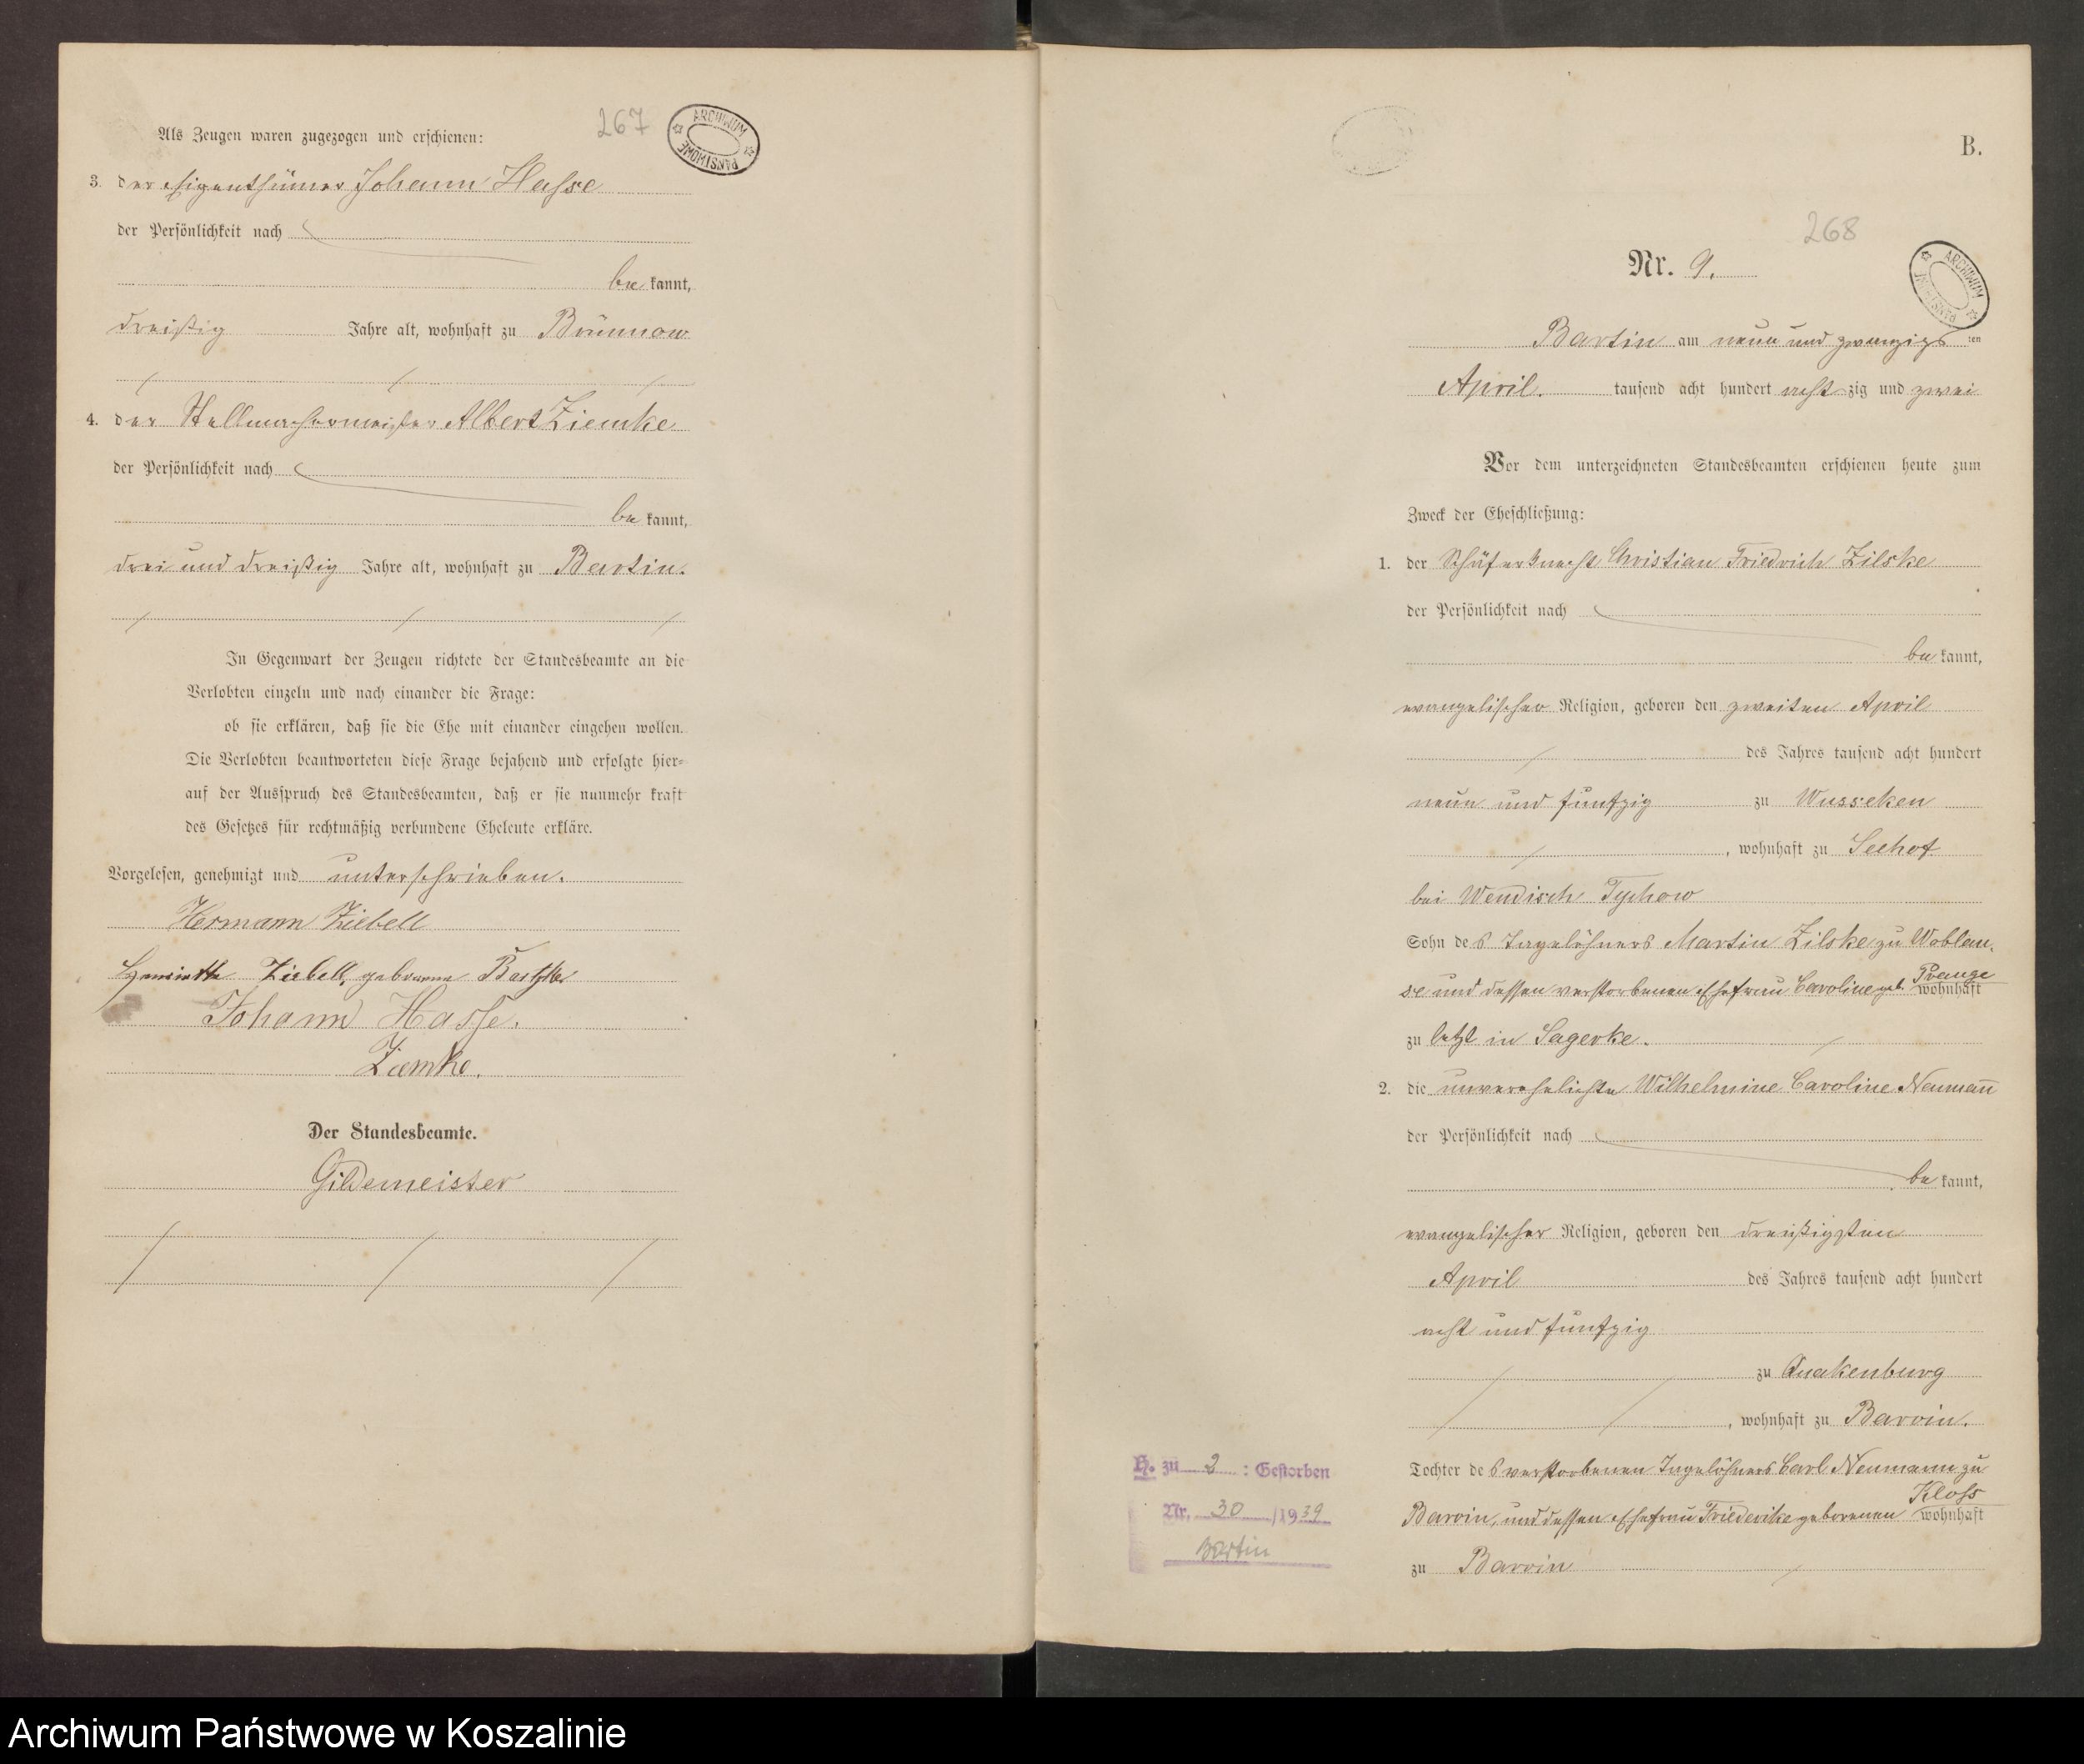 267
ARCHIWUM PAŃSTWOWE
Als Zeugen waren zugezogen und erschienen:
3. der Eigenthümer Johann Hasse
der Persönlichkeit nach
be kannt,
dreißig Jahre alt, wohnhaft zu Brünnow
4. der Stellmachermeister Albert Ziemke
der Persönlichkeit nach
be kannt,
drei und dreißig Jahre alt, wohnhaft zu Bartin.
In Gegenwart der Zeugen richtete der Standesbeamte an die
Verlobten einzeln und nach einander die Frage:
ob sie erklären, daß sie die Ehe mit einander eingehen wollen.
Die Verlobten beantworteten diese Frage bejahend und erfolgte hier-
auf der Ausspruch des Standesbeamten, daß er sie nunmehr kraft
des Gesetzes für rechtmäßig verbundene Eheleute erkläre.
Vorgelesen, genehmigt und unterschrieben.
Hermann Ziebell
Henriette Ziebell, geborene
Johann Hasse.
Ziemke.
Der Standesbeamte.
Gildemeister
B.
268
ARCHIWUM PAŃSTWOWE
Nr. 9.
Bartin am neun und zwanzigs ten
April. tausend acht hundert acht zig und zwei
Vor dem unterzeichneten Standesbeamten erschienen heute zum
Zweck der Eheschließung:
1. der Schäferknecht Christian Friedrich Zilske
der Persönlichkeit nach
be kannt,
evangelischer Religion, geboren den zweiten April
des Jahres tausend acht hundert
neun und fünfzig zu Wusseken
, wohnhaft zu Seehof
bei Wendisch Tychow
Sohn des Tagelöhners Martin Zilske zu Woblan-
se und dessen verstorbenen Ehefrau Caroline geb. Prange wohnhaft
zu letzt in Sagerke.
2. die unverehelichte Wilhelmine Caroline Neumann
der Persönlichkeit nach
be kannt,
evangelischer Religion, geboren den dreißigsten
April des Jahres tausend acht hundert
acht und fünfzig
zu Quakenburg
, wohnhaft zu Barvin.
Tochter des verstorbenen Tagelöhners Carl Neumann zu
Barvin, und dessen Ehefrau Friederike geborenen Kloss wohnhaft
zu Barvin
H. zu 2 : Gestorben
Nr. 30 /1939
Bartin
Archiwum Państwowe w Koszalinie